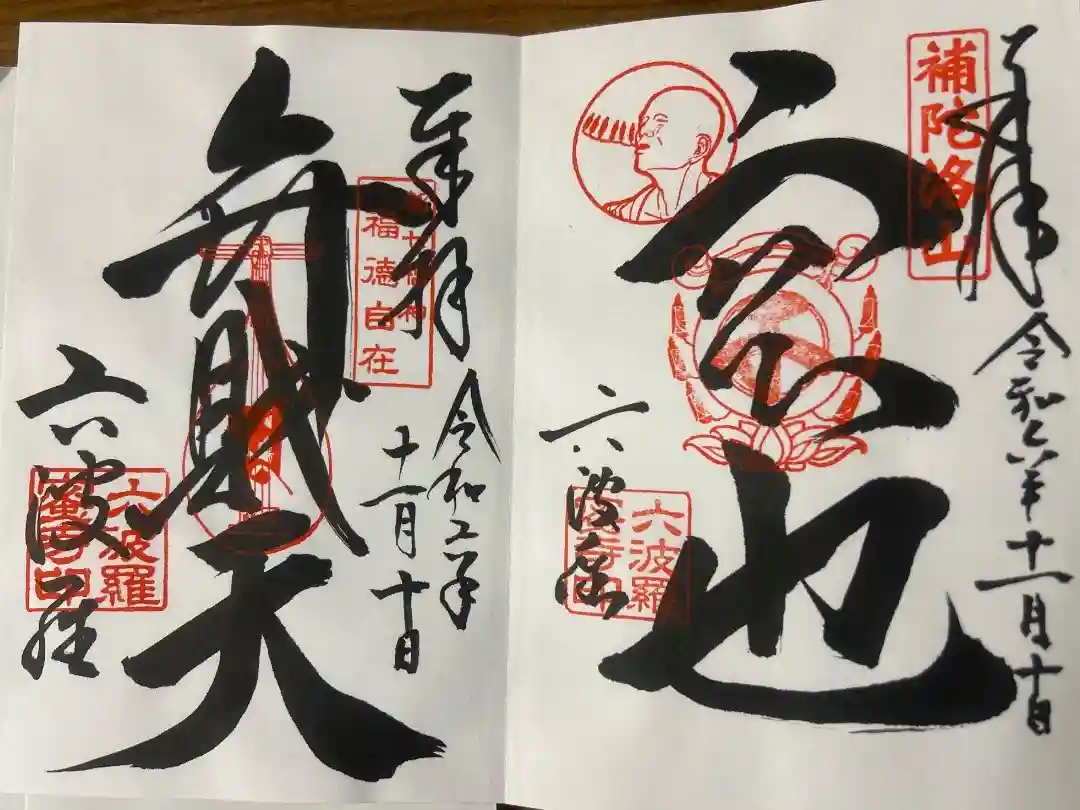 奉拝
令和六年十一月十日
補陀洛山
空也
六波羅
六波羅
蜜寺印
奉拝
令和六年
十一月十日
都七福神
福徳自在
弁財天
六波羅
六波羅
蜜寺印